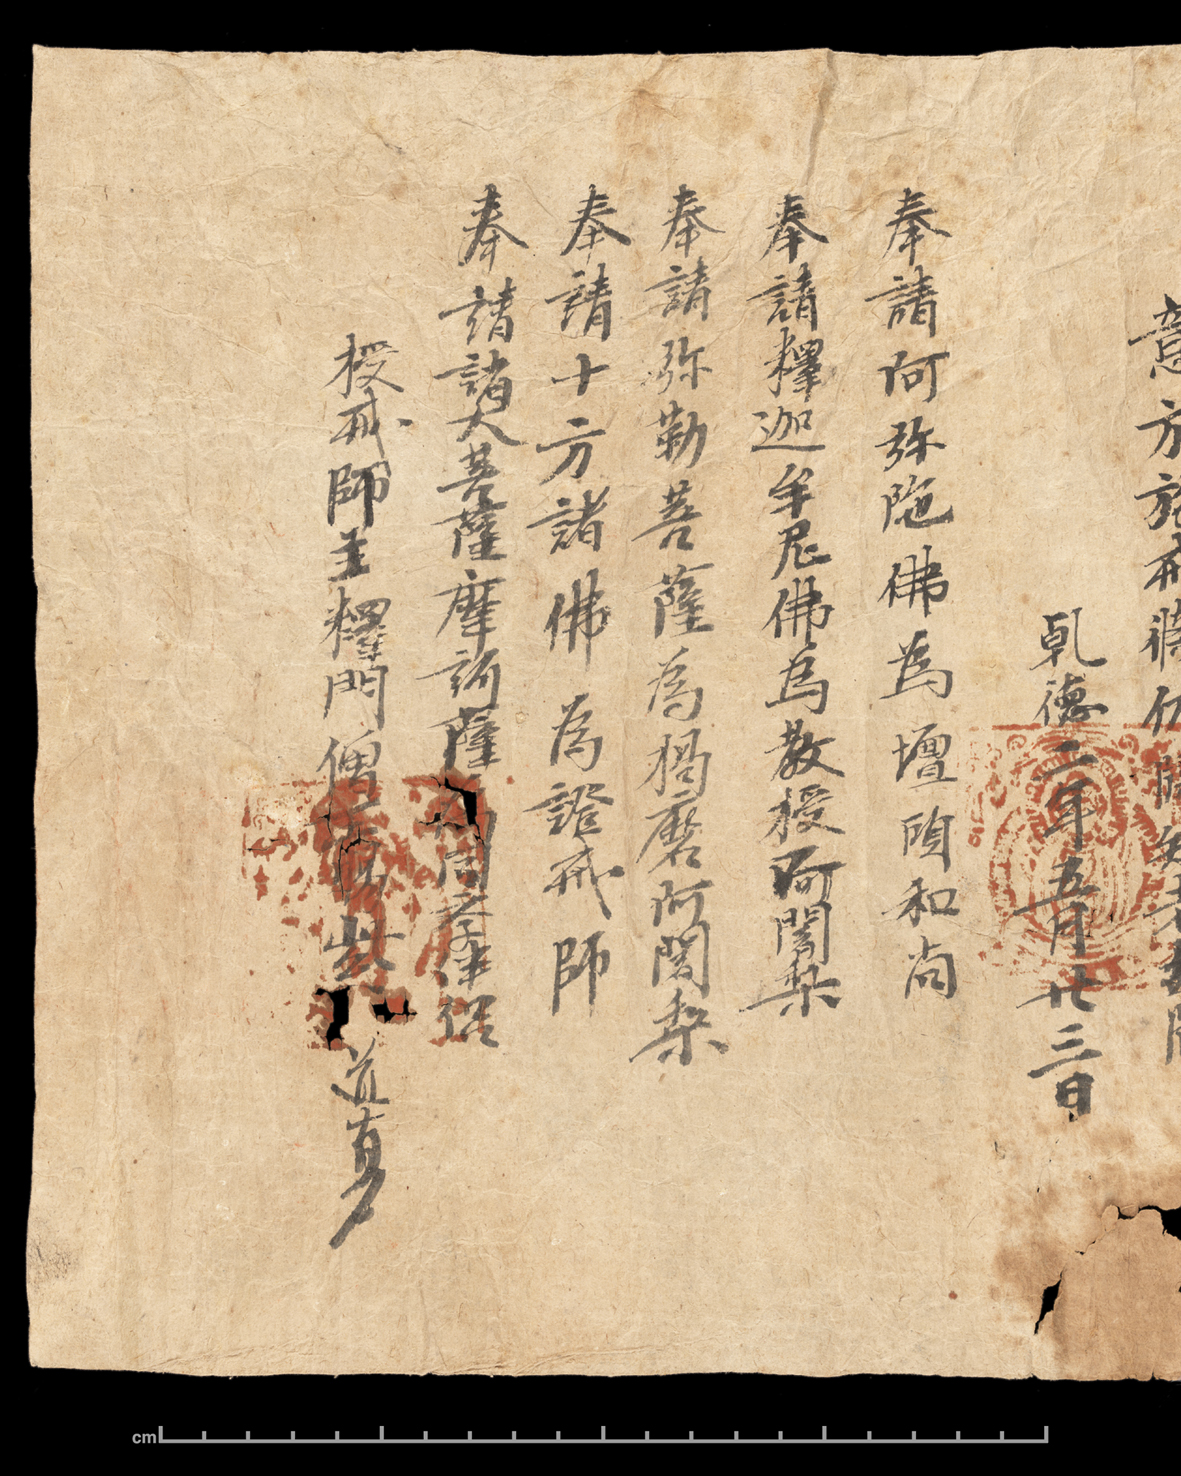 意方施戒牒仍
乹德二年五月廿三日
奉請阿弥陁佛為壇頭和尚
奉請釋迦牟尼佛為教授阿闍梨
奉請弥勒菩薩為羯磨阿闍梨
奉請十方諸佛為證戒師
奉請諸大菩薩摩訶薩為同學伴侶
授戒師主釋門僧 道真
cm